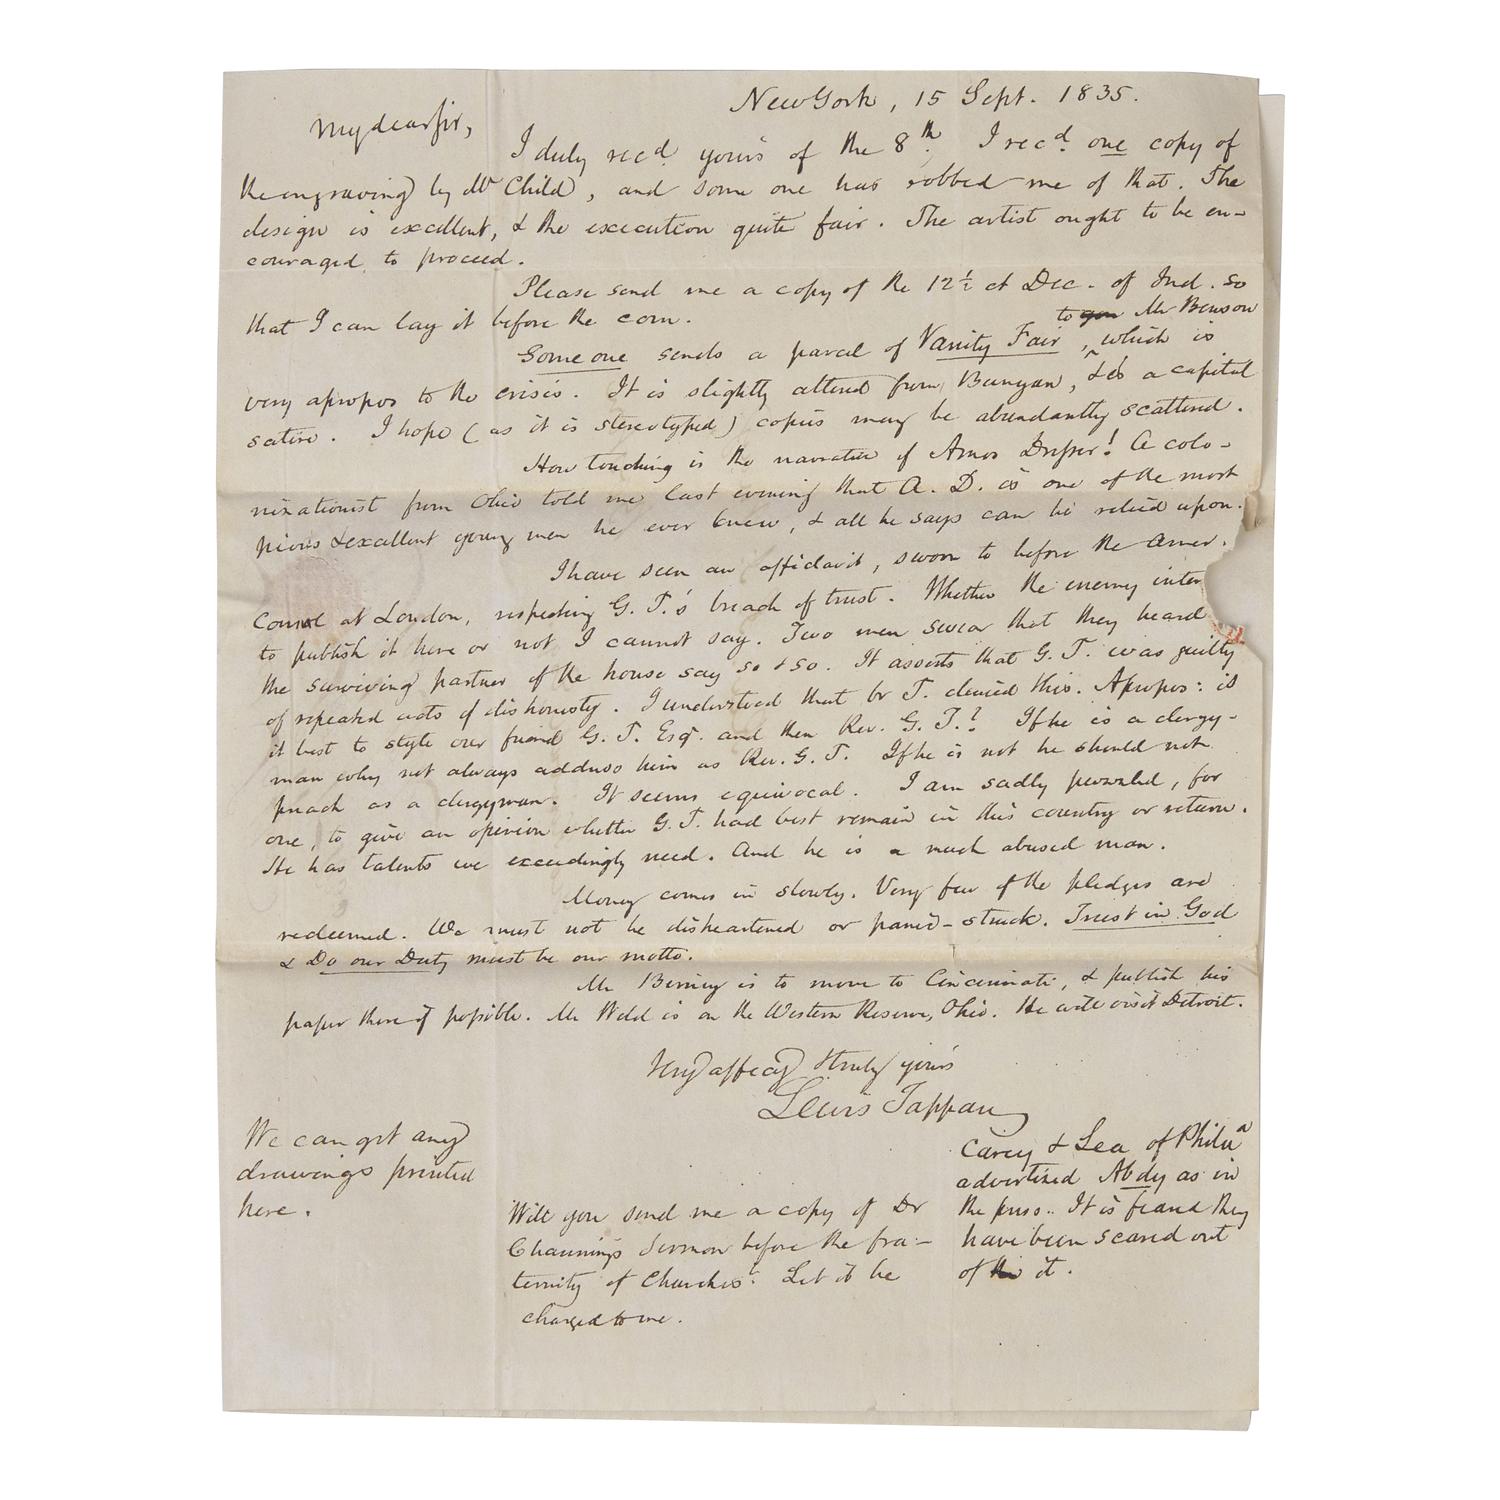 New York, 15 Sept. 1835.
My dear sir,
I duly recd. yours of the 8th. I recd. one copy of
the engraving by Mr Child, and some one has robbed me of that. The
design is excellent, & the execution quite fair. The artist ought to be en-
couraged to proceed.
Please send me a copy of the 12½ ct Dec. of Ind. so
that I can lay it before the com.
to you Mr Benson
Some one sends a parcel of Vanity Fair, which is
very apropos to the crisis. It is slightly altered from Bunyan, & is a capital
satire. I hope (as it is stereotyped) copies may be abundantly scattered.
How touching is the narrative of Amos Dresser! A colo-
nizationist from Ohio told me last evening that A. D. is one of the most
pious & excellent young men he ever knew, & all he says can be relied upon.
I have seen an affidavit, sworn to before the Amer.
Consul at London, respecting G. T.'s breach of trust. Whether the enemy inter
to publish it here or not I cannot say. Two men swear that they heard
the surviving partner of the house say so & so. It asserts that G. T. was guilty
of repeated acts of dishonesty. I understood that br T. denied this. Apropos: is
it best to style our friend G. T. Esqr. and then Rev. G. T.? If he is a clergy-
man why not always address him as Rev. G. T. If he is not he should not
preach as a clergyman. It seems equivocal. I am sadly puzzled, for
one, to give an opinion whether G. T. had best remain in this country or return.
He has talents we exceedingly need. And he is a much abused man.
Money comes in slowly. Very few of the pledges are
redeemed. We must not be disheartened or panic-struck. Trust in God
& Do our Duty must be our motto.
Mr Birney is to move to Cincinnati, & publish his
paper there if possible. Mr Weld is on the Western Reserve, Ohio. He will visit Detroit.
Very affecy & truly yours
Lewis Tappan
We can get any
drawings printed
here.
Will you send me a copy of Dr
Channing's sermon before the fra-
ternity of Churches? Let it be
charged to me.
Carey & Lea of Phila
advertised Abdy as in
the press. It is feared they
have been scared out
of the it.